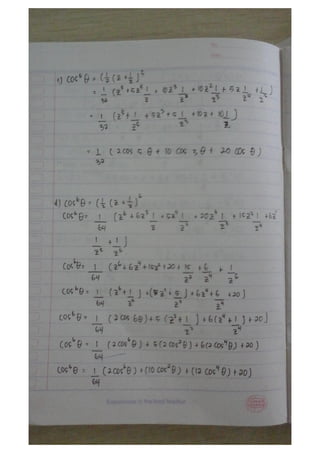 c) cos⁵θ = (½ (z + 1/z))⁵
= 1/32 (z⁵ + 5z⁴ 1/z + 10z³ 1/z² + 10z² 1/z³ + 5z 1/z⁴ + 1/z⁵)
= 1/32 (z⁵ + 1/z⁵ + 5z³ + 5 1/z³ + 10z + 10 1/z)
= 1/32 (2 cos 5θ + 10 cos 3θ + 20 cos θ)
d) cos⁶θ = (½ (z + 1/z))⁶
cos⁶θ = 1/64 (z⁶ + 6z⁵ 1/z + 20z³ 1/z³ + 15z² 1/z⁴ + 6z
1/z⁵ + 1/z⁶)
cos⁶θ = 1/64 (z⁶ + 6z⁴ + 15z² + 20 + 15/z² + 6/z⁴ + 1/z⁶
cos⁶θ = 1/64 (z⁶ + 1/z⁶) + 6z⁴ + 6/z⁴ + 20)
cos⁶θ = 1/64 (2 cos 6θ) + 5 (z² + 1/z²) + 6(z⁴ + 1/z⁴) + 20)
cos⁶θ = 1/64 (2 cos⁶θ) + 5 (2 cos²θ) + 6(2 cos⁴θ) + 20)
cos⁶θ = 1/64 (2 cos⁶θ) + (10 cos²θ) + (12 cos⁴θ) + 20)
Experience is the best teacher